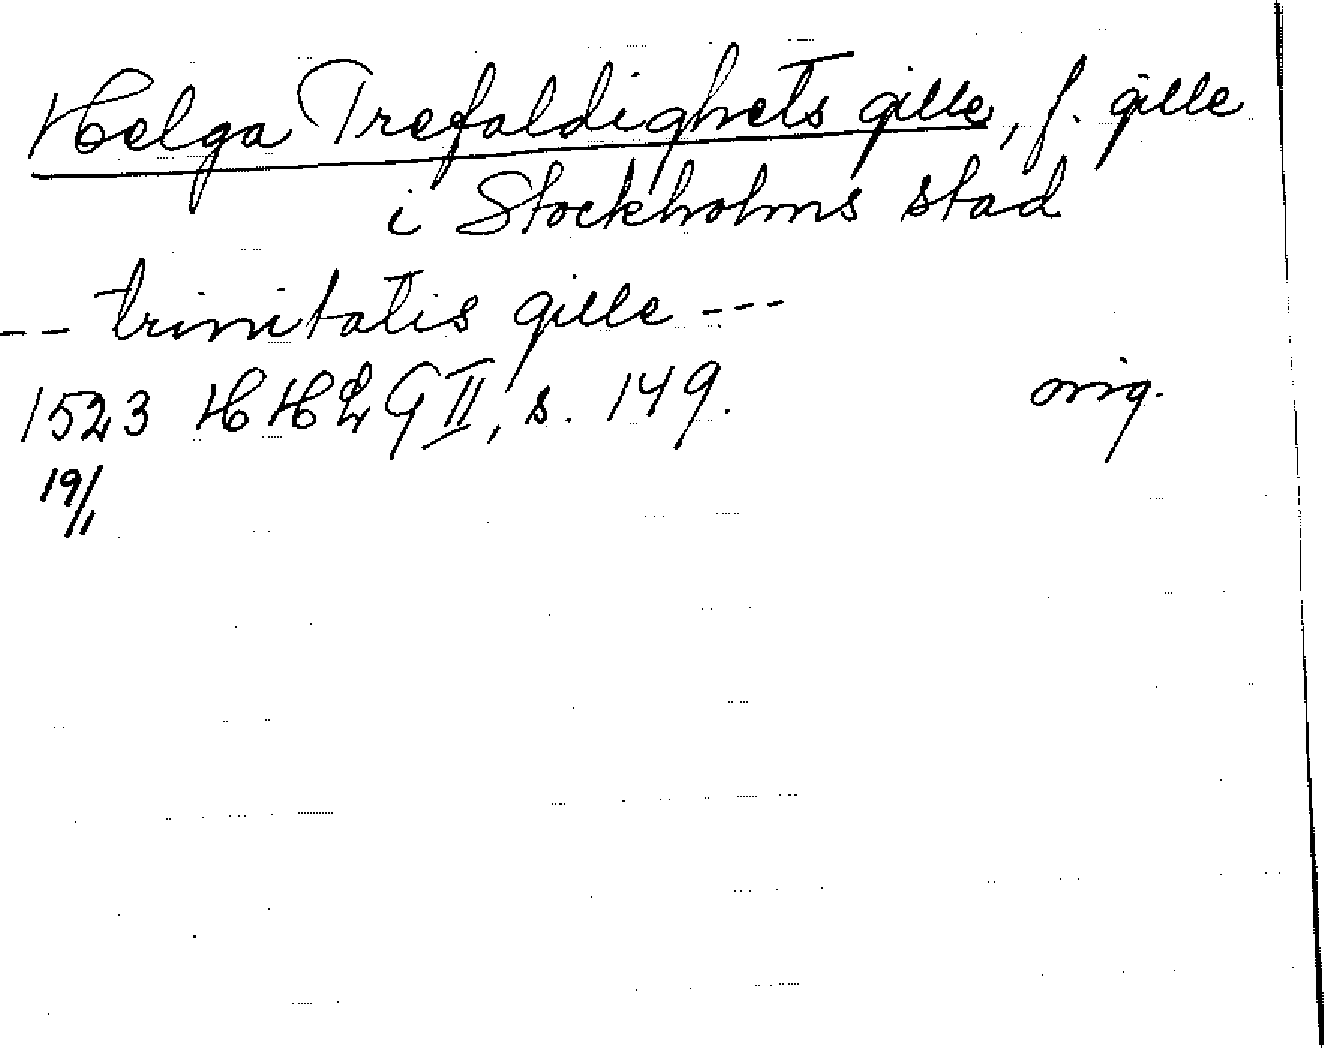 Helga Trefaldighets gille, f. gille
i Stockholms stad
-- trinitatis gille ---
1523 HHLG II, s. 149. orig.
19/1